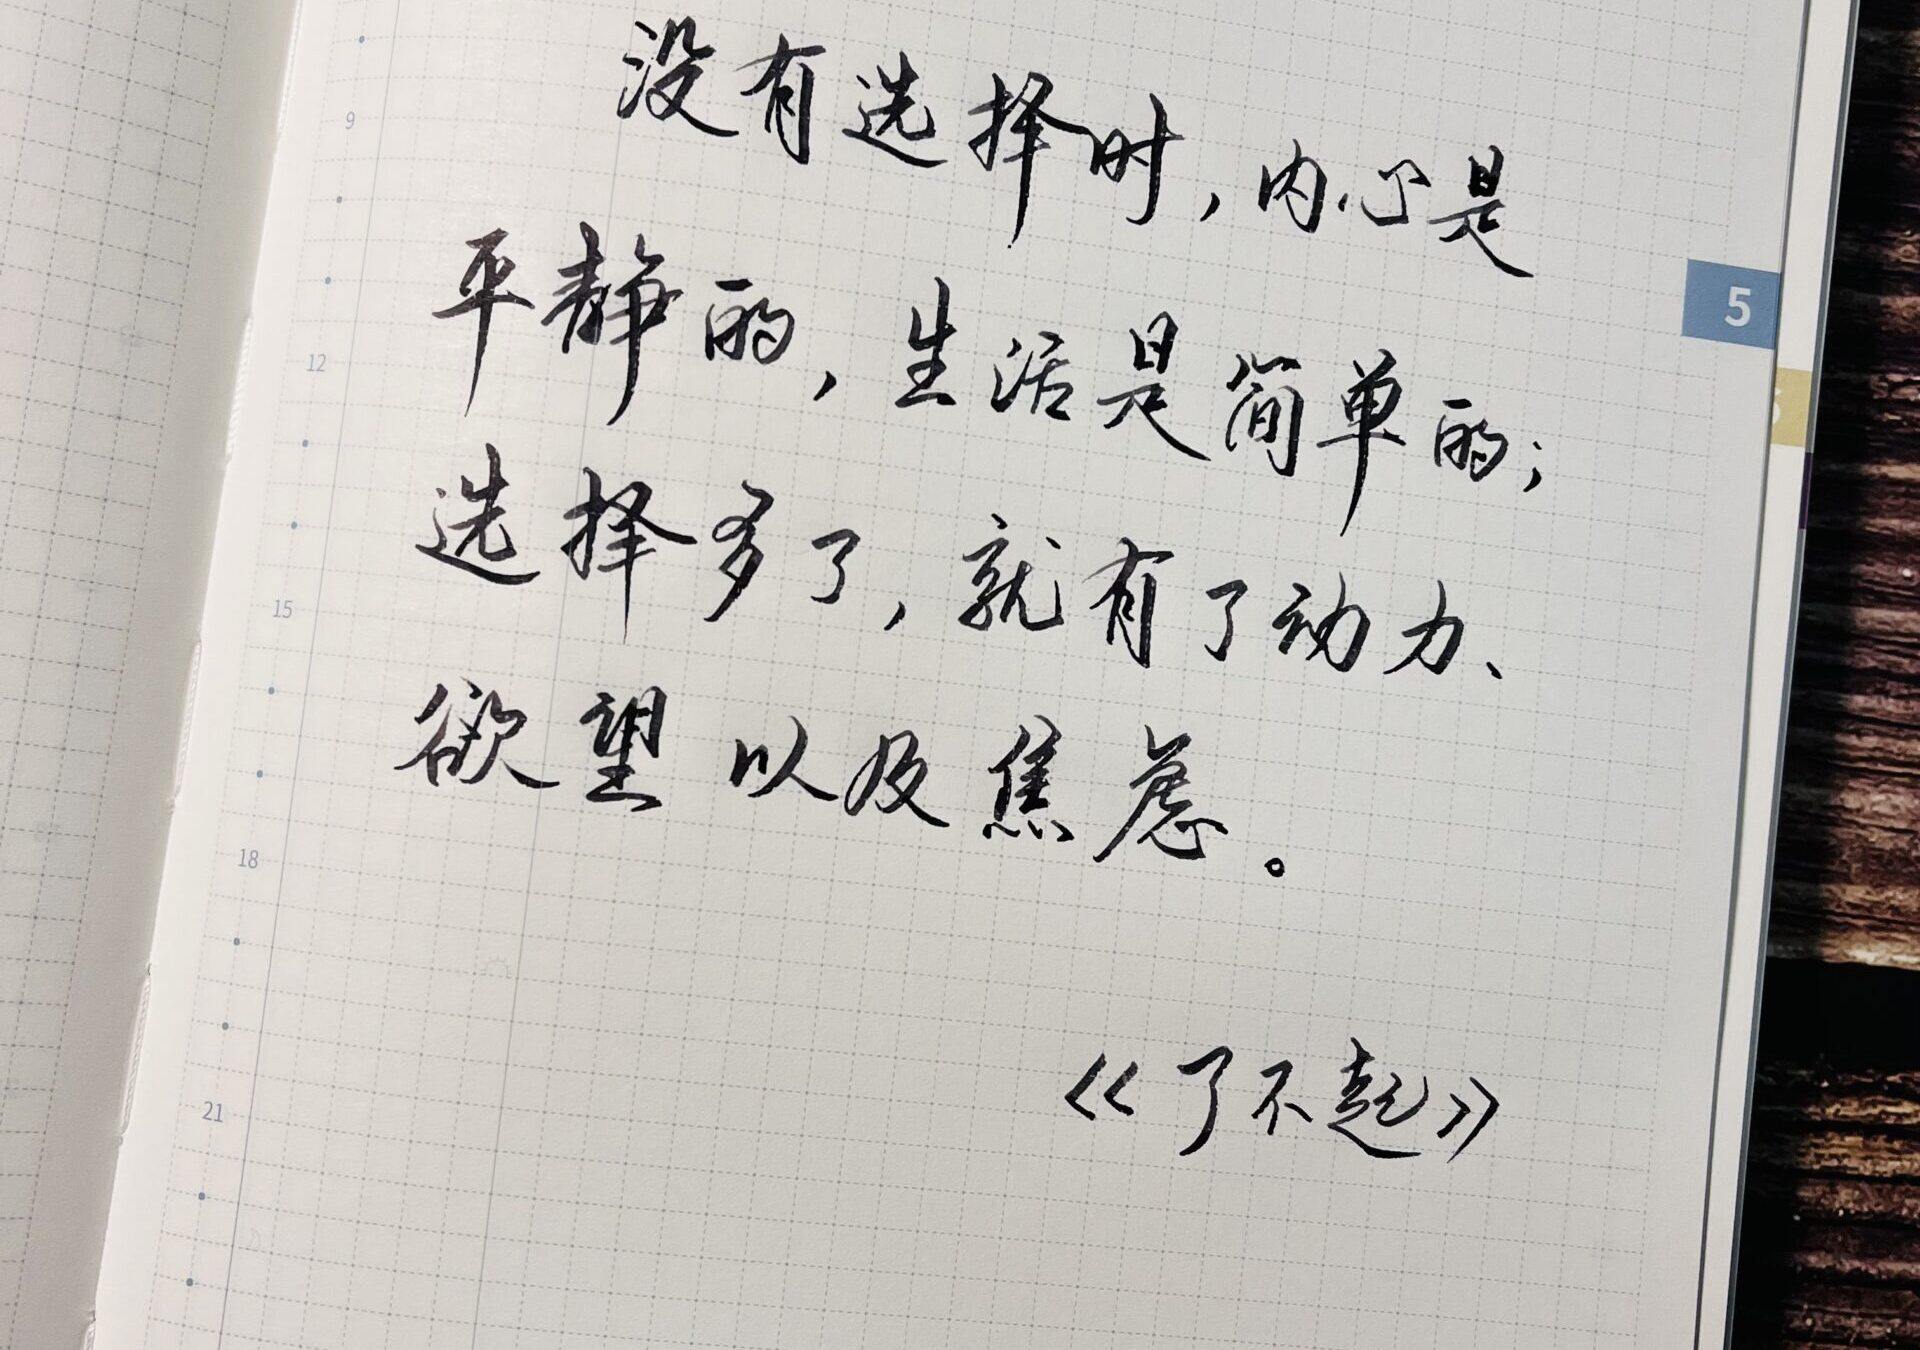 没有选择时，内心是
平静的，生活是简单的；
选择多了，就有了动力、
欲望以及焦虑。
《了不起》
9
12
15
18
21
5